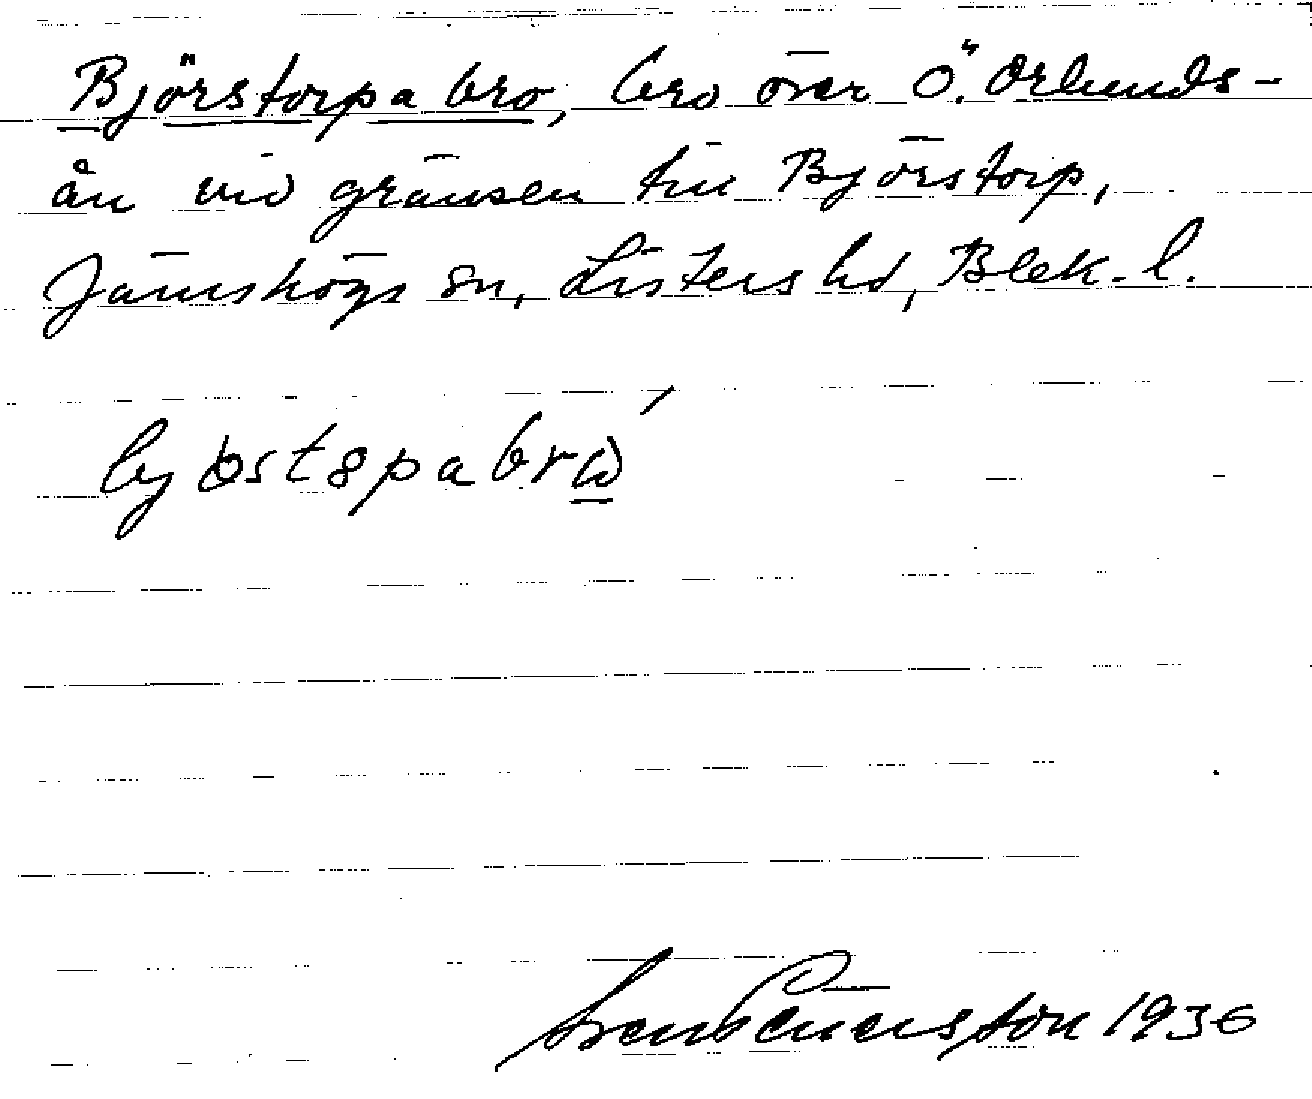 Björstorpa bro, bro över Ö. Orlunds-
ån vid gränsen till Björstorp,
Jämshögs sn, Listers hd, Blek. l.
1936